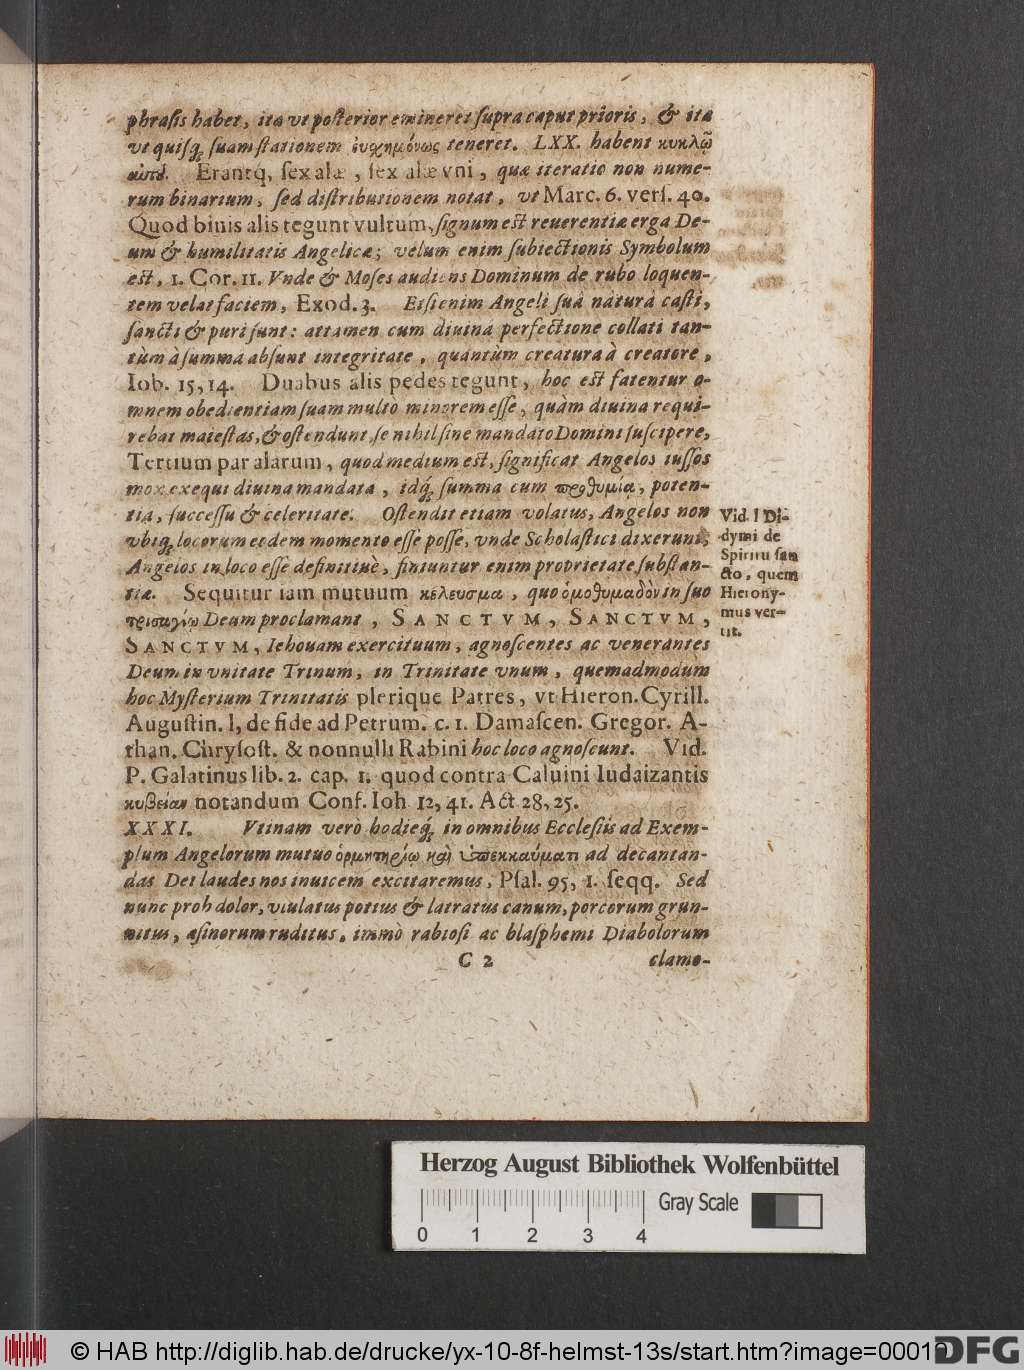 phraſis habet, ita vt poſterior emineret ſupra caput prioris, & ita
vt quiſq; ſuam ſtationem ἐυχημόνως teneret. LXX. habent κυκλῶ
αὐτῦ. Erantq́, ſex alæ, ſex alæ vni, quæ iteratio non nume-
rum binarium, ſed diſtributionem notat, vt Marc. 6. verſ. 40.
Quod binis alis tegunt vultum, ſignum eſt reuerentiæ erga De-
um & humilitatis Angelicæ; velum enim ſubiectionis Symbolum
eſt, 1. Cor. 11. Vnde & Moſes audiens Dominum de rubo loquen-
tem velat faciem, Exod. 3. Etſi enim Angeli ſuâ naturâ caſti,
ſancti & puri ſunt: attamen cum diuina perfectione collati tan-
tùm à ſummâ abſunt integritate, quantùm creatura à creatore,
Iob. 15, 14. Duabus alis pedes tegunt, hoc eſt fatentur o-
mnem obedientiam ſuam multo minorem eſſe, quàm diuina requi-
rebat maieſtas, & oſtendunt, ſe nihil ſine mandato Domini ſuſcipere,
Tertium par alarum, quod medium eſt, ſignificat Angelos iuſſos
mox exequi diuina mandata, idq́; ſumma cum προθυμία, poten-
tia, ſucceſſu & celeritate. Oſtendit etiam volatus, Angelos non
vbiq; locorum eodem momento eſſe poſſe, vnde Scholaſtici dixerunt;
Angelos in loco eſſe definitiuè, finiuntur enim proprietate ſubſtan-
tiæ. Sequitur iam mutuum κέλευσμα, quo ὁμοθυμαδὸν in ſuo
τρισαγίῳ Deum proclamant, SANCTVM, SANCTVM,
SANCTVM, Iehouam exercituum, agnoſcentes ac venerantes
Deum in vnitate Trinum, in Trinitate vnum, quemadmodùm
hoc Myſterium Trinitatis plerique Patres, vt Hieron. Cyrill.
Auguſtin. l, de fide ad Petrum. c. 1. Damaſcen. Gregor. A-
than. Chryſoſt. & nonnulli Rabini hoc loco agnoſcunt. Vid.
P. Galatinus lib. 2. cap. 1. quod contra Caluini Iudaizantis
κυβείαν notandum Conf. Ioh 12, 41. Act 28, 25.
XXXI. Vtinam verò hodieq́; in omnibus Eccleſiis ad Exem-
plum Angelorum mutuo ὁρμητηρίῳ καὶ ὑπεκκαύματι ad decantan-
das Dei laudes nos inuicem excitaremus, Pſal. 95, 1. ſeqq. Sed
nunc proh dolor, viulatus potius & latratus canum, porcorum grun-
nitus, aſinorum ruditus, immò rabioſi ac blaſphemi Diabolorum
C 2 clamo-
Vid. l Di-
dymi de
Spiritu ſan
cto, quem
Hierony-
mus ver-
tit.
Herzog August Bibliothek Wolfenbüttel
Gray Scale
0 1 2 3 4
© HAB http://diglib.hab.de/drucke/yx-10-8f-helmst-13s/start.htm?image=00019
DFG